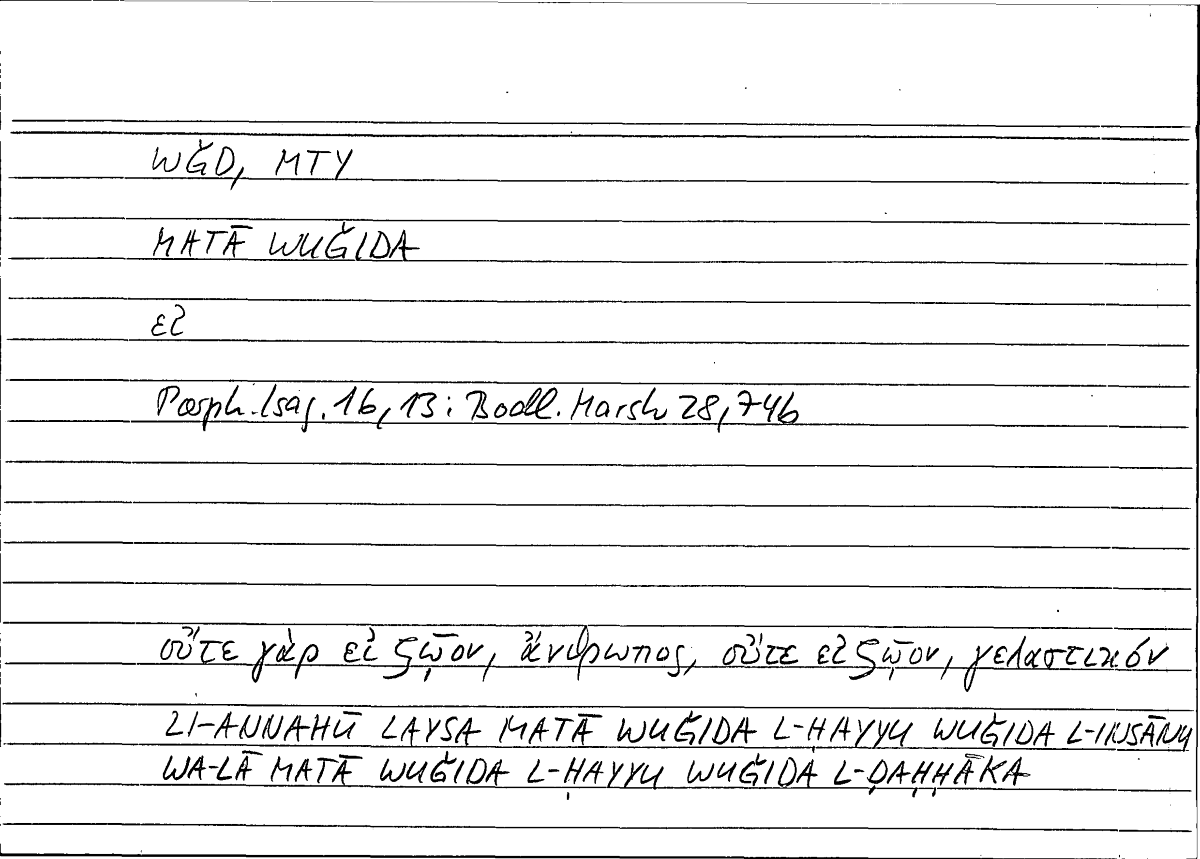 WǦD, MTY
MATĀ WUǦIDA
εἰ
Porph. Isag. 16, 13 : Bodl. Marsh 28, 74b
οὔτε γὰρ εἰ ζῷον, ἄνθρωπος, οὔτε εἰ ζῷον, γελαστικόν
LI-ANNAHŪ LAYSA MATĀ WUǦIDA L-ḤAYYU WUǦIDA L-INSĀNU
WA-LĀ MATĀ WUǦIDA L-ḤAYYU WUǦIDA L-ḌAḤḤĀKA